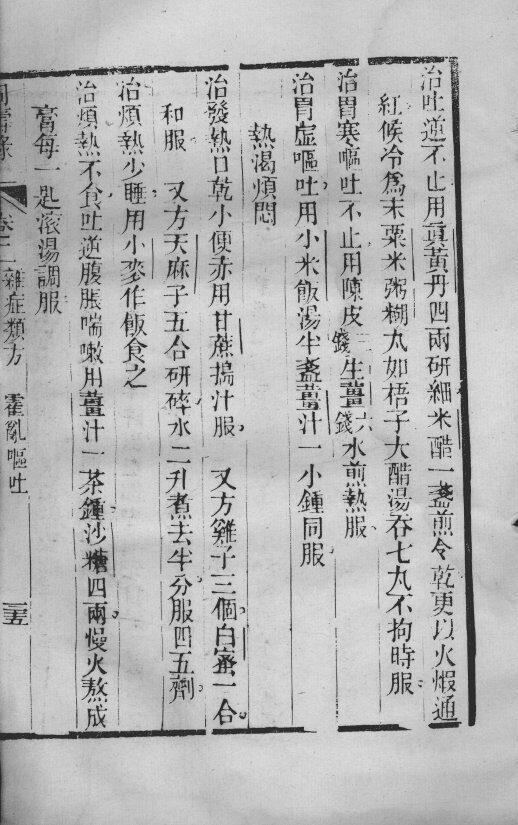 治吐逆不止用真黃丹四兩研細米醋一盞煎令乾更以火煆通
紅候冷為末粟米粥糊丸如梧子大醋湯吞七丸不拘時服
治胃寒嘔吐不止用陳皮三錢生薑六錢水煎熱服
治胃虛嘔吐用小米飯湯半盞薑汁一小鍾同服
熱渴煩悶
治發熱口乾小便赤用甘蔗搗汁服 又方雞子三個白蜜一合
和服 又方天麻子五合研碎水二升煮去半分服四五劑
治煩熱少睡用小麥作飯食之
治煩熱不食吐逆腹脹喘嗽用薑汁一茶鍾沙糖四兩慢火熬成
膏每一匙滾湯調服
卷二 雜症類方 霍亂嘔吐 三五